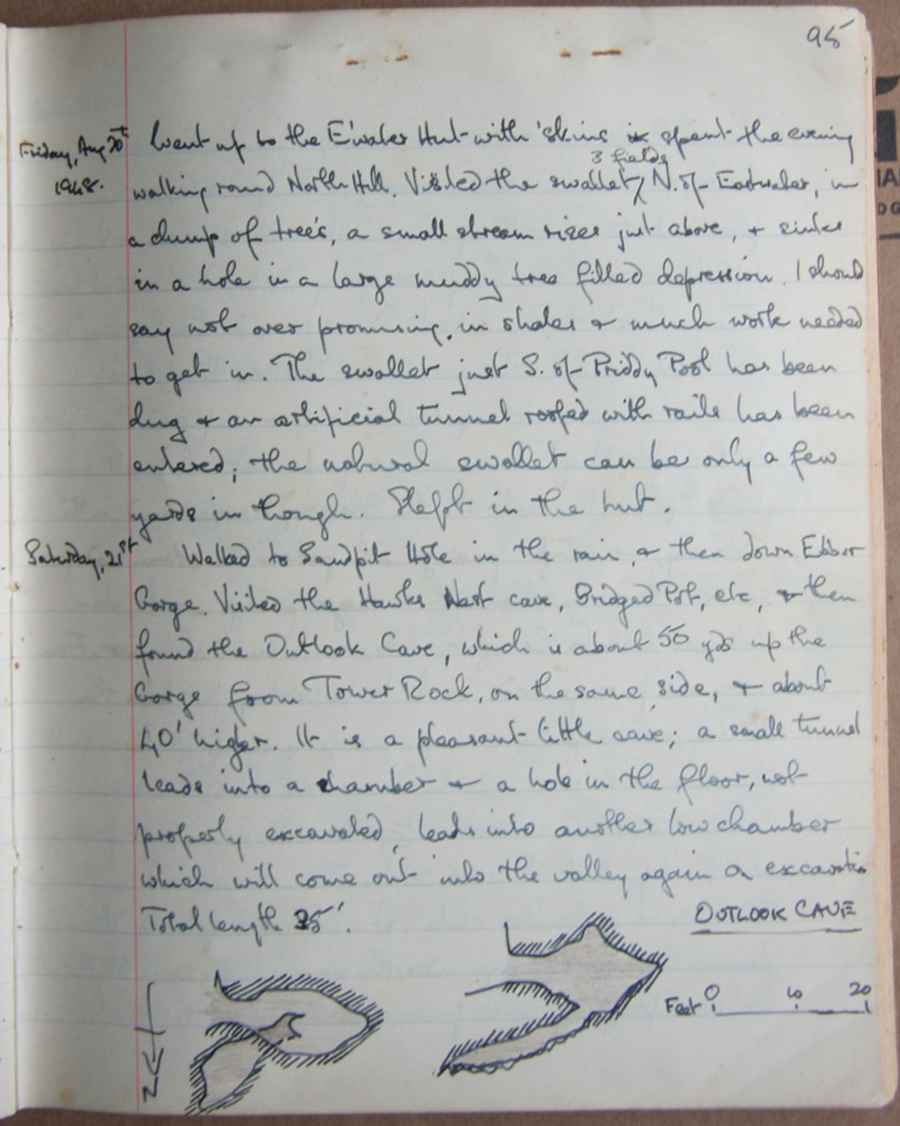 95
Friday, Aug 20th
1948.
Went up to the E'water Hut with 'skins & spent the evening
3 fields
walking round North Hill. Visited the swallet N. of Eastwater, in
a clump of trees, a small stream rises just above, + sinks
in a hole in a large muddy tree filled depression. I should
say not over promising, in shales + much work needed
to get in. The swallet just S. of Priddy Pool has been
dug + an artificial tunnel roofed with rails has been
entered; the natural swallet can be only a few
yards in though. Slept in the hut.
Saturday, 21st
Walked to Sandpit Hole in the rain, + then down Ebbor
Gorge. Visited the Hawks Nest cave, Bridged Pot, etc, + then
found the Outlook Cave, which is about 50 yds up the
Gorge from Tower Rock, on the same side, + about
40' higher. It is a pleasant little cave; a small tunnel
leads into a chamber + a hole in the floor, not
properly excavated, leads into another low chamber
which will come out into the valley again on excavation
Total length 35'.
OUTLOOK CAVE
Feet 0 10 20
N